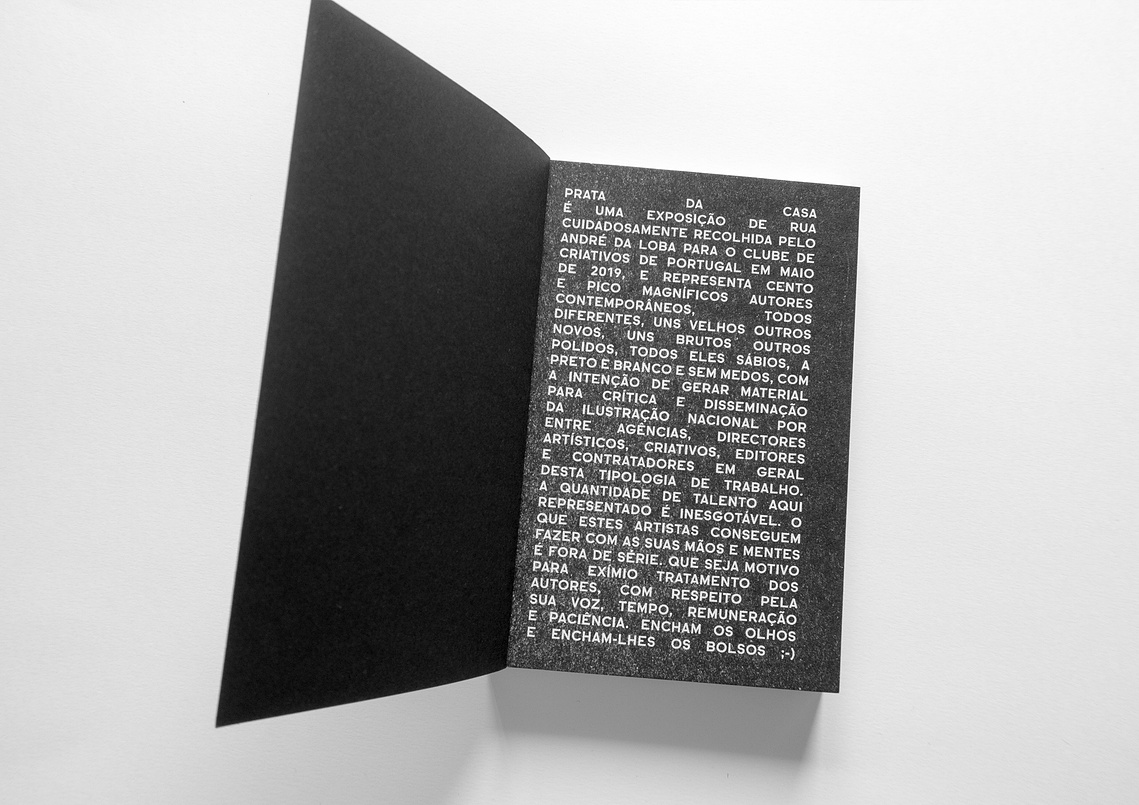 PRATA DA CASA
É UMA EXPOSIÇÃO DE RUA
CUIDADOSAMENTE RECOLHIDA PELO
ANDRÉ DA LOBA PARA O CLUBE DE
CRIATIVOS DE PORTUGAL EM MAIO
DE 2019, E REPRESENTA CENTO
E PICO MAGNÍFICOS AUTORES
CONTEMPORÂNEOS, TODOS
DIFERENTES, UNS VELHOS OUTROS
NOVOS, UNS BRUTOS OUTROS
POLIDOS, TODOS ELES SÁBIOS, A
PRETO E BRANCO E SEM MEDOS, COM
A INTENÇÃO DE GERAR MATERIAL
PARA CRÍTICA E DISSEMINAÇÃO
DA ILUSTRAÇÃO NACIONAL POR
ENTRE AGÊNCIAS, DIRECTORES
ARTÍSTICOS, CRIATIVOS, EDITORES
E CONTRATADORES EM GERAL
DESTA TIPOLOGIA DE TRABALHO.
A QUANTIDADE DE TALENTO AQUI
REPRESENTADO É INESGOTÁVEL. O
QUE ESTES ARTISTAS CONSEGUEM
FAZER COM AS SUAS MÃOS E MENTES
É FORA DE SÉRIE. QUE SEJA MOTIVO
PARA EXÍMIO TRATAMENTO DOS
AUTORES, COM RESPEITO PELA
SUA VOZ, TEMPO, REMUNERAÇÃO
E PACIÊNCIA. ENCHAM OS OLHOS
E ENCHAM-LHES OS BOLSOS ;-)